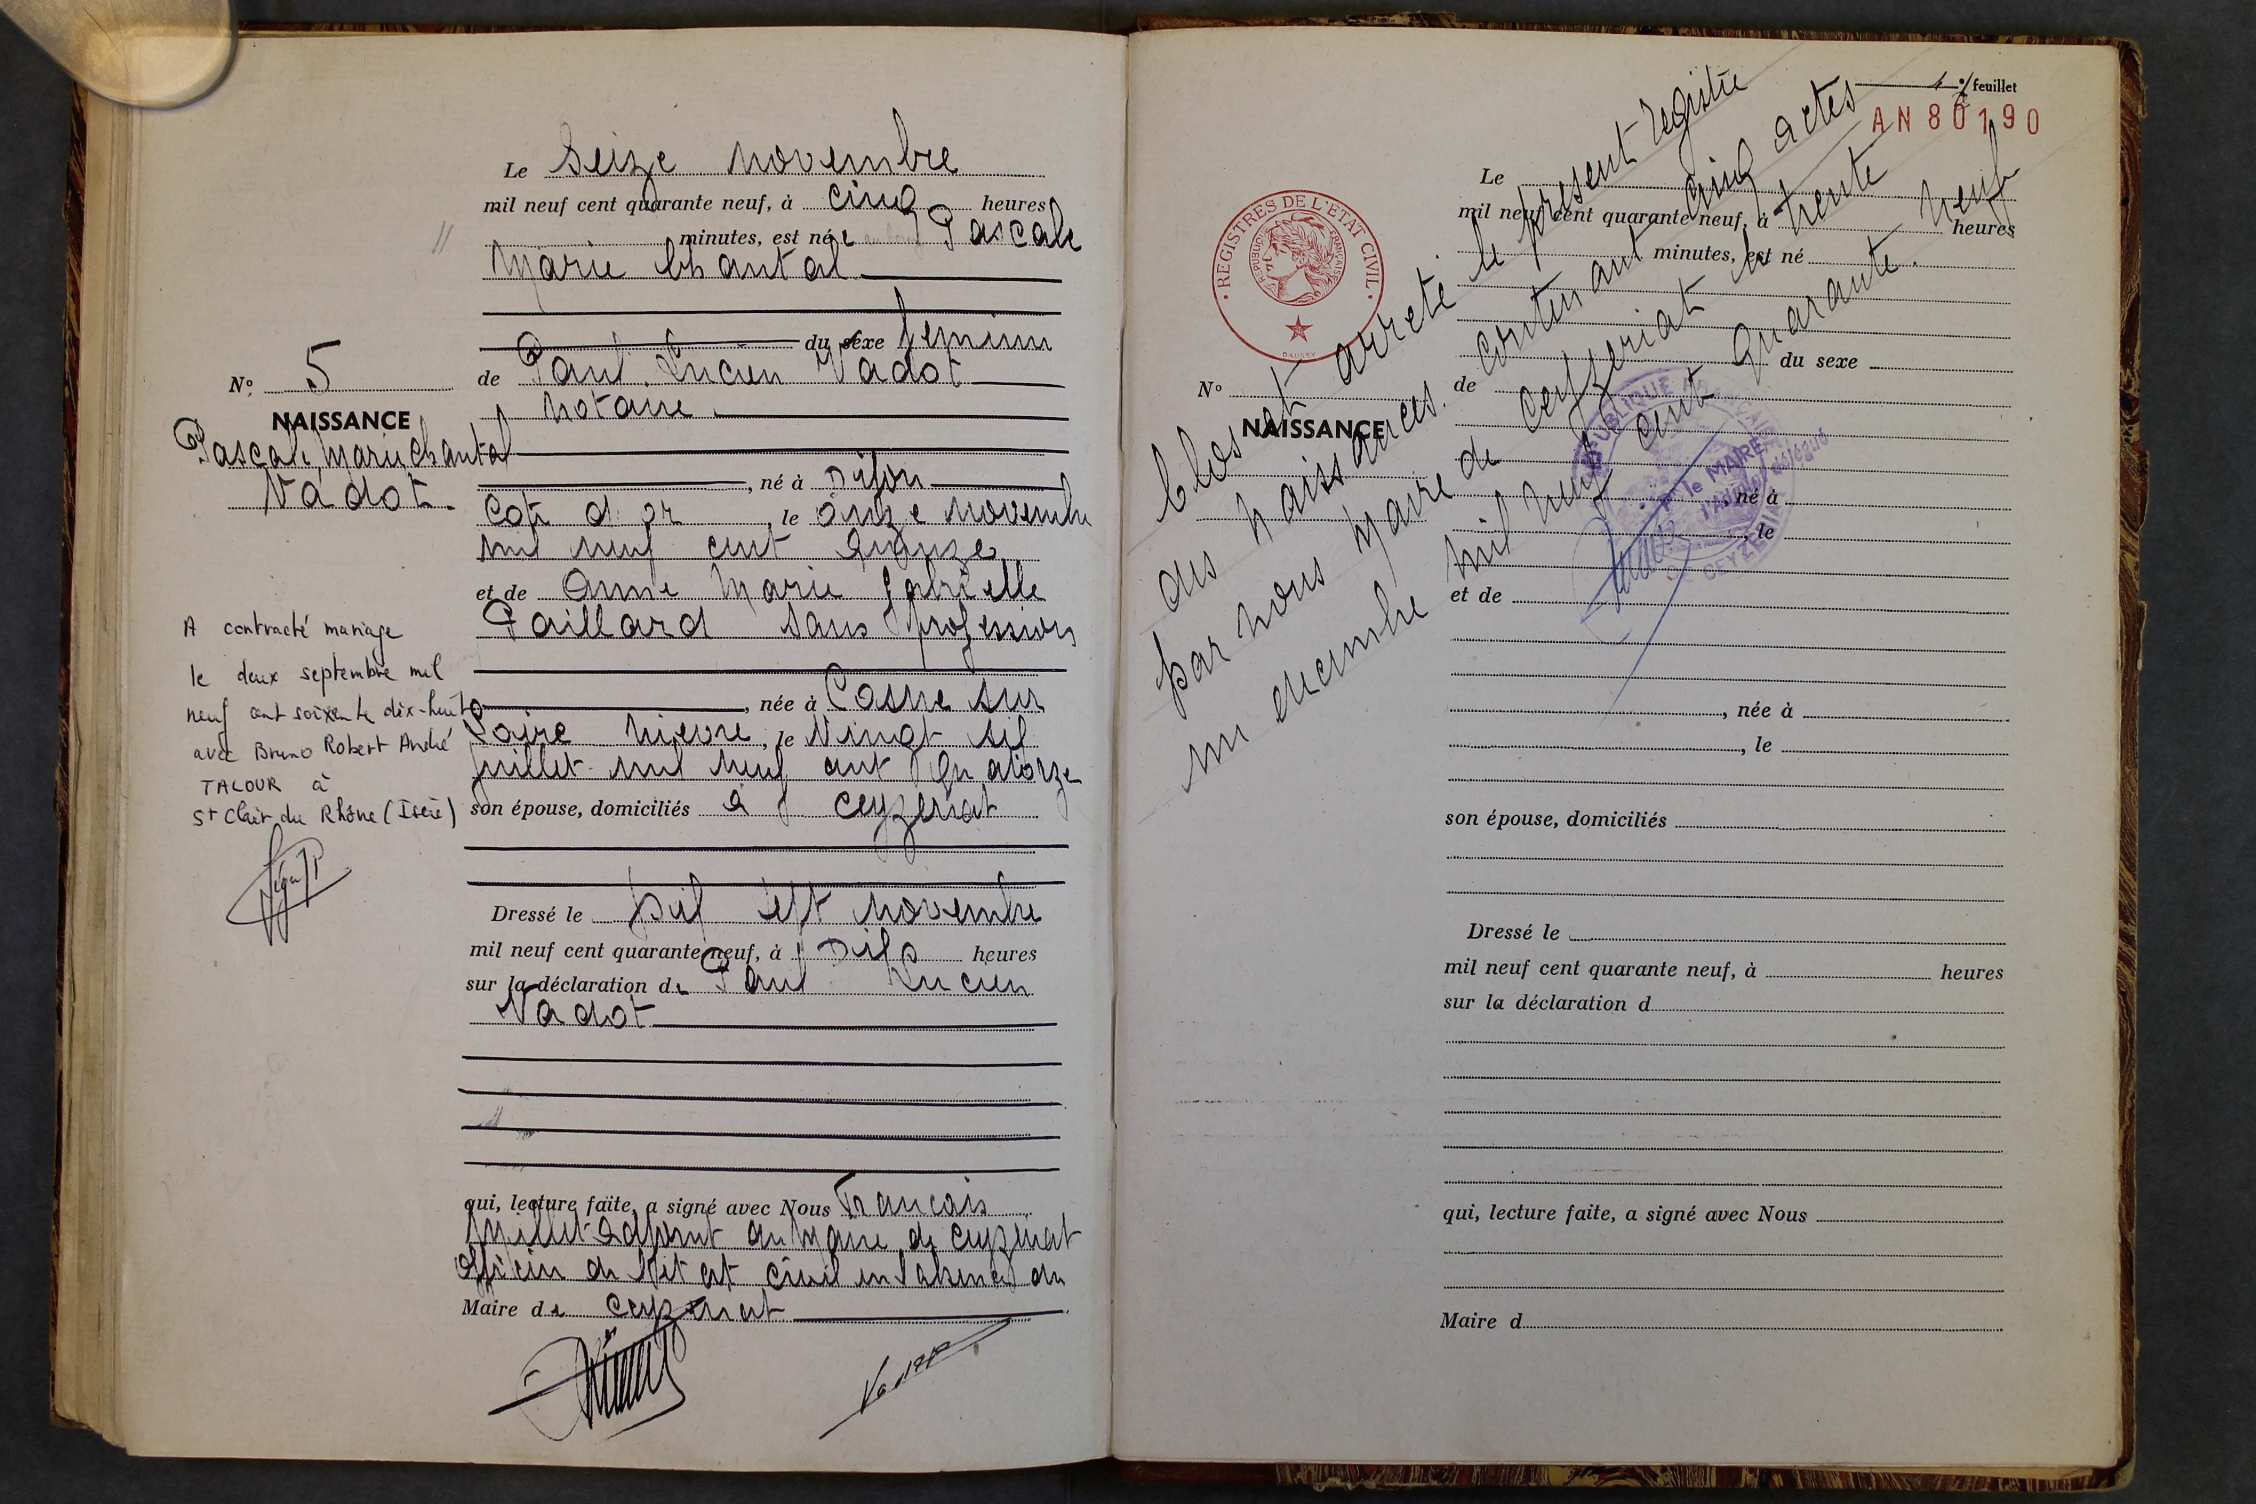 Le seize novembre
mil neuf cent quarante neuf, à cinq heures
minutes, est née Pascale
Marie Chantal
du sexe feminin
de Paul Lucien Vadot
notaire
N° 5
NAISSANCE
Pascale Marie Chantal
Vadot
, né à Dijon
Cote d or, le onze novembre
mil neuf cent quinze
et de Anne Marie Gabrielle
Paillard sans profession
, née à Cosne sur
Loire Nievre, le Vingt six
juillet mil neuf cent quatorze
son épouse, domiciliés à Ceyzeriat
A contracté mariage
le deux septembre mil
neuf cent soixante dix-huit
avec Bruno Robert André
TALOUR à
St Clair du Rhône (Isère)
Dressé le Dix sept novembre
mil neuf cent quarante neuf, à Dix heures
sur la déclaration de Paul Lucien
Vadot
qui, lecture faite, a signé avec Nous Francois
Millet adjoint au Maire de Ceyzeriat
officier de l'etat civil en l absence du
Maire de Ceyzeriat
Vadot
feuillet
AN 80190
REGISTRES DE L'ETAT CIVIL
REPUBLIQUE FRANÇAISE
Clos et arreté le present registre
des naissances contenant cinq actes
par nous Maire de Ceyzeriat le trente
un decembre mil neuf cent quarante neuf
Le
mil neuf cent quarante neuf, à heures
minutes, est né
du sexe
N°
NAISSANCE
de
, né à
, le
RÉPUBLIQUE FRANÇAISE
Pr le MAIRE
l'Adjoint délégué
DE CEYZERIAT
et de
, née à
, le
son épouse, domiciliés
Dressé le
mil neuf cent quarante neuf, à heures
sur la déclaration d
qui, lecture faite, a signé avec Nous
Maire d